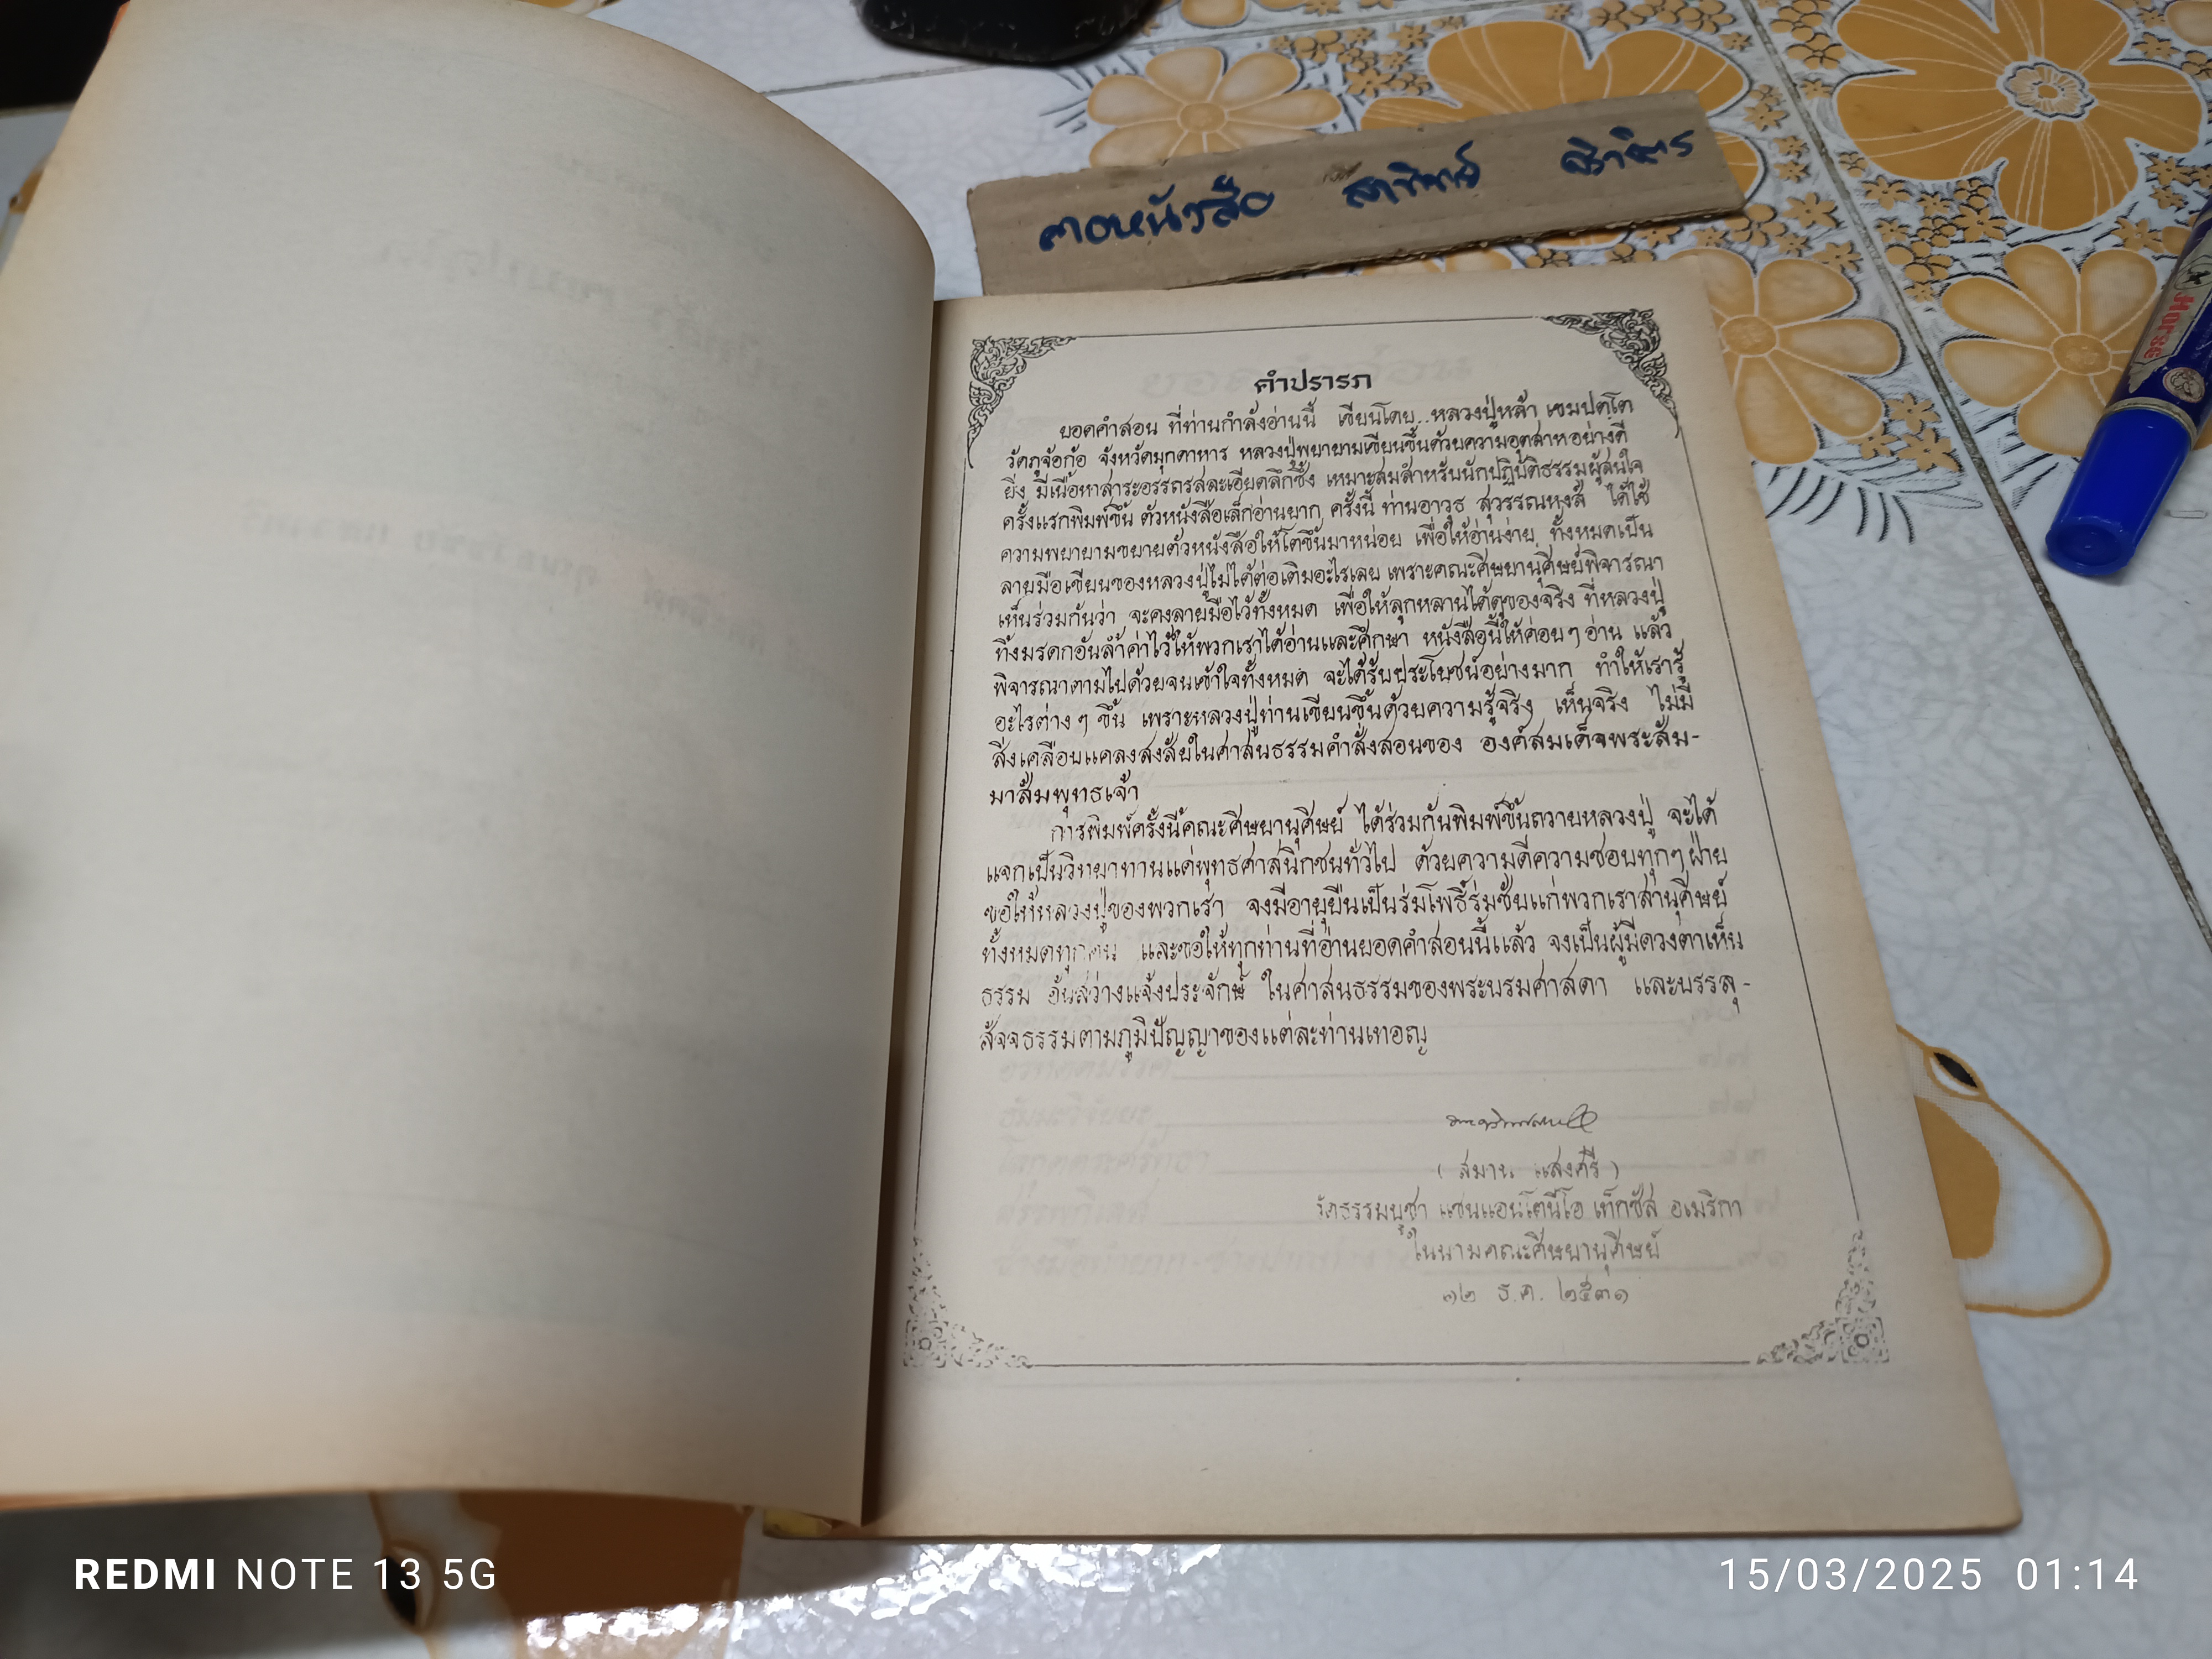 คำปรารภ
ยอดคำสอน ที่ท่านกำลังอ่านนี้ เขียนโดย..หลวงปู่หล้า เขมปตฺโต
วัดภูจ้อก้อ จังหวัดมุกดาหาร หลวงปู่พยายามเขียนขึ้นด้วยความอุตสาหอย่างดี
ยิ่ง มีเนื้อหาสาระอรรถรสละเอียดลึกซึ้ง เหมาะสมสำหรับนักปฏิบัติธรรมผู้สนใจ
ครั้งแรกพิมพ์ขึ้น ตัวหนังสือเล็กอ่านยาก ครั้งนี้ ท่านอาวุธ สุวรรณหงส์ ได้ใช้
ความพยายามขยายตัวหนังสือให้โตขึ้นมาหน่อย เพื่อให้อ่านง่าย ทั้งหมดเป็น
ลายมือเขียนของหลวงปู่ไม่ได้ต่อเติมอะไรเลย เพราะคณะศิษยานุศิษย์พิจารณา
เห็นร่วมกันว่า จะคงลายมือไว้ทั้งหมด เพื่อให้ลูกหลานได้ดูของจริง ที่หลวงปู่
ทิ้งมรดกอันล้ำค่าไว้ให้พวกเราได้อ่านและศึกษา หนังสือนี้ให้ค่อยๆ อ่าน แล้ว
พิจารณาตามไปด้วยจนเข้าใจทั้งหมด จะได้รับประโยชน์อย่างมาก ทำให้เรารู้
อะไรต่างๆ ขึ้น เพราะหลวงปู่ท่านเขียนขึ้นด้วยความรู้จริง เห็นจริง ไม่มี
สิ่งเคลือบแคลงสงสัยในศาสนธรรมคำสั่งสอนของ องค์สมเด็จพระสัม-
มาสัมพุทธเจ้า
การพิมพ์ครั้งนี้คณะศิษยานุศิษย์ ได้ร่วมกันพิมพ์ขึ้นถวายหลวงปู่ จะได้
แจกเป็นวิทยาทานแด่พุทธศาสนิกชนทั่วไป ด้วยความดีความชอบทุกๆ ฝ่าย
ขอให้หลวงปู่ของพวกเรา จงมีอายุยืนเป็นร่มโพธิ์ร่มชัยแก่พวกเราสานุศิษย์
ทั้งหมดทุกคน และขอให้ทุกท่านที่อ่านยอดคำสอนนี้แล้ว จงเป็นผู้มีดวงตาเห็น
ธรรม อันสว่างแจ้งประจักษ์ ในศาสนธรรมของพระบรมศาสดา และบรรลุ-
สัจจธรรมตามภูมิปัญญาของแต่ละท่านเทอญ
( สมาน แสงศรี )
วัดธรรมบูชา แซนแอนโตนีโอ เท็กซัส อเมริกา
ในนามคณะศิษยานุศิษย์
๑๒ ธ.ค. ๒๕๓๑
Horse
REDMI NOTE 13 5G
15/03/2025 01:14